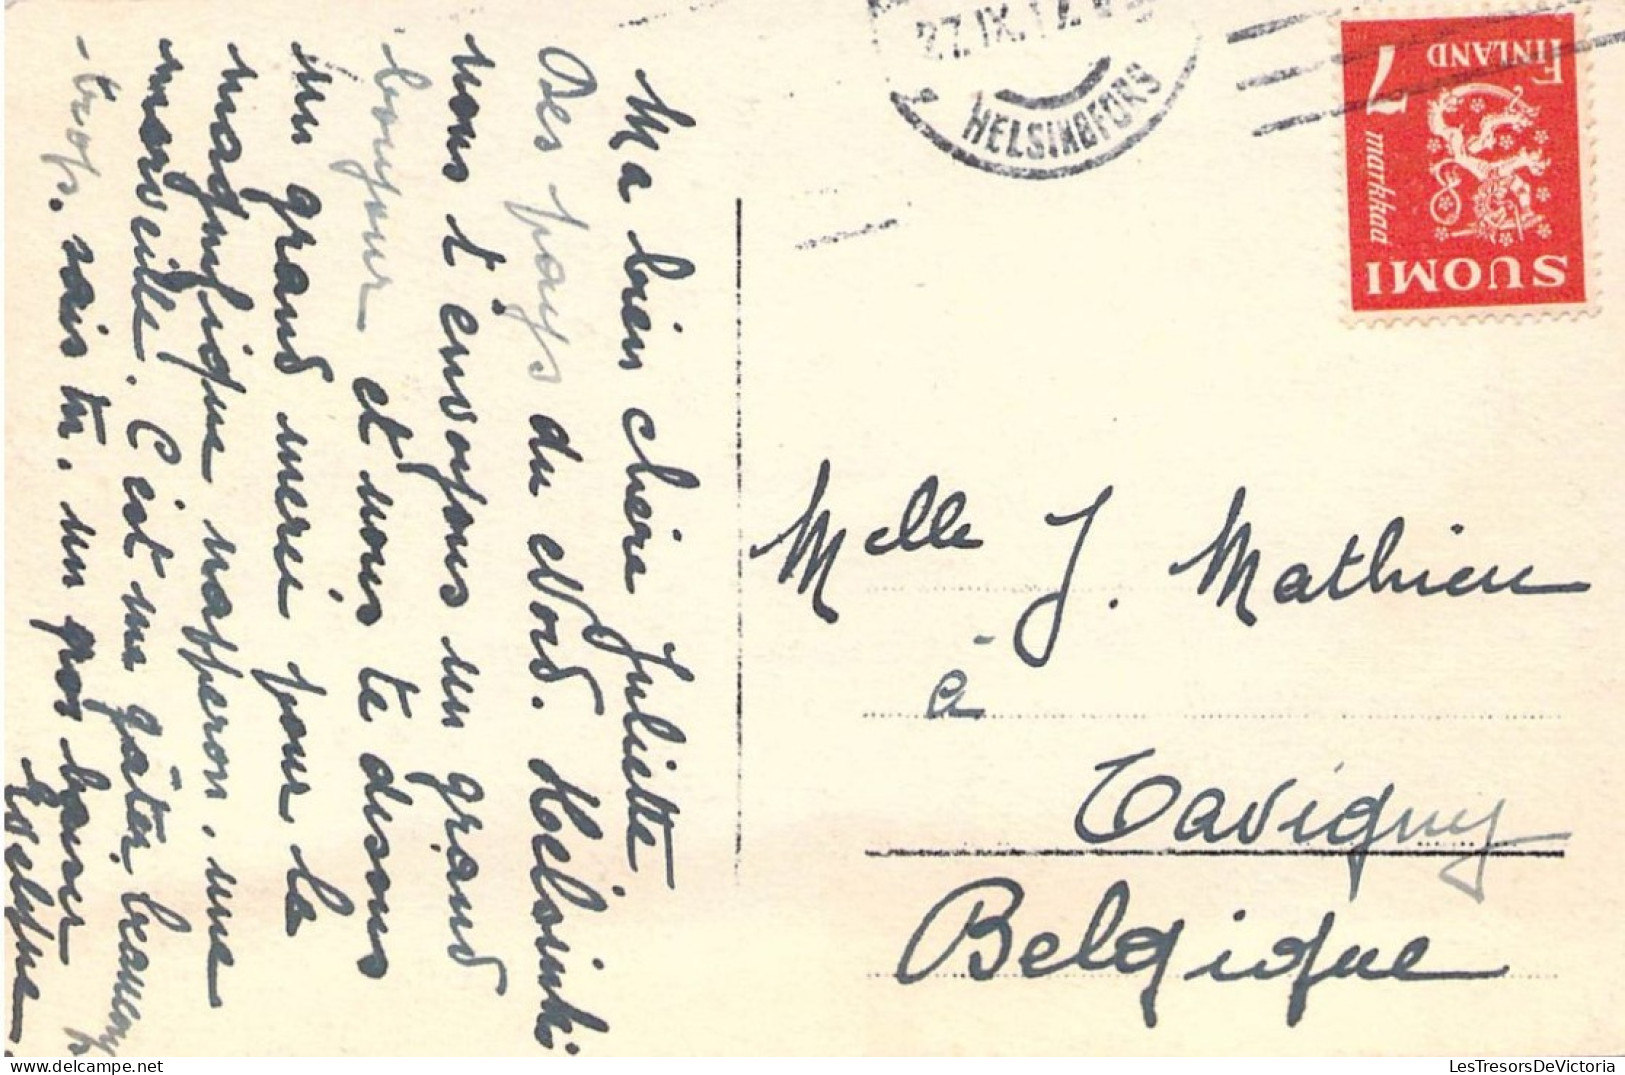 Ma bien chère Juliette.
Des pays du Nord. Helsinki
nous t'envoyons un grand
bonjour et nous te disons
un grand merci pour le
magnifique napperon, une
merveille. C'est me gâter beaucoup
trop, sais tu. un gros baiser
27.IX.
HELSINGFORS
FINLAND
7 markkaa
SUOMI
Melle J. Mathieu
à
Tavigny
Belgique
LesTresorsDeVictoria